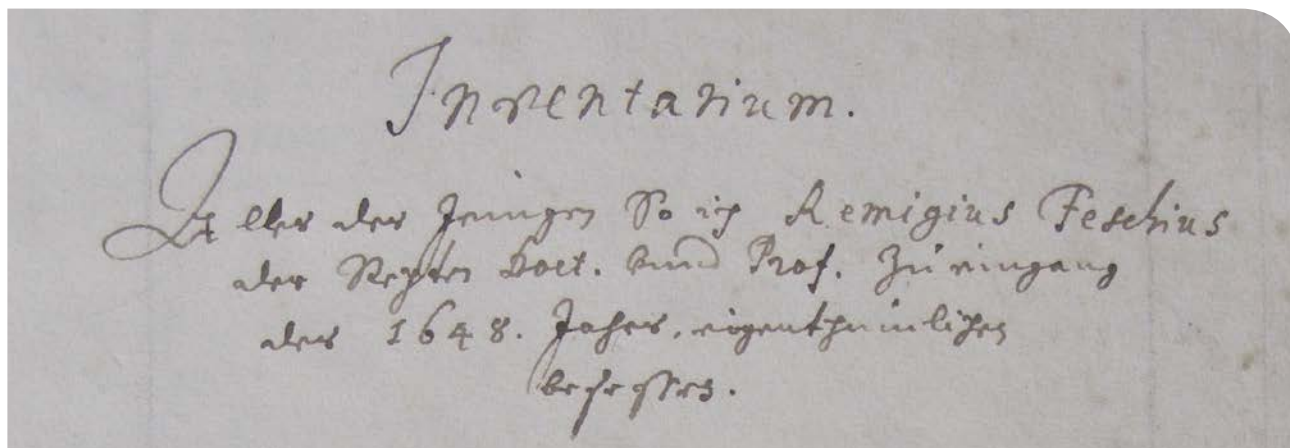 Inventarium.
Alles des Jenigen So ich Remigius Feschius
der Rechten Doct. vnnd Prof. Zu eingang
des 1648. Jahrs, eigenthumlichen
besessen.